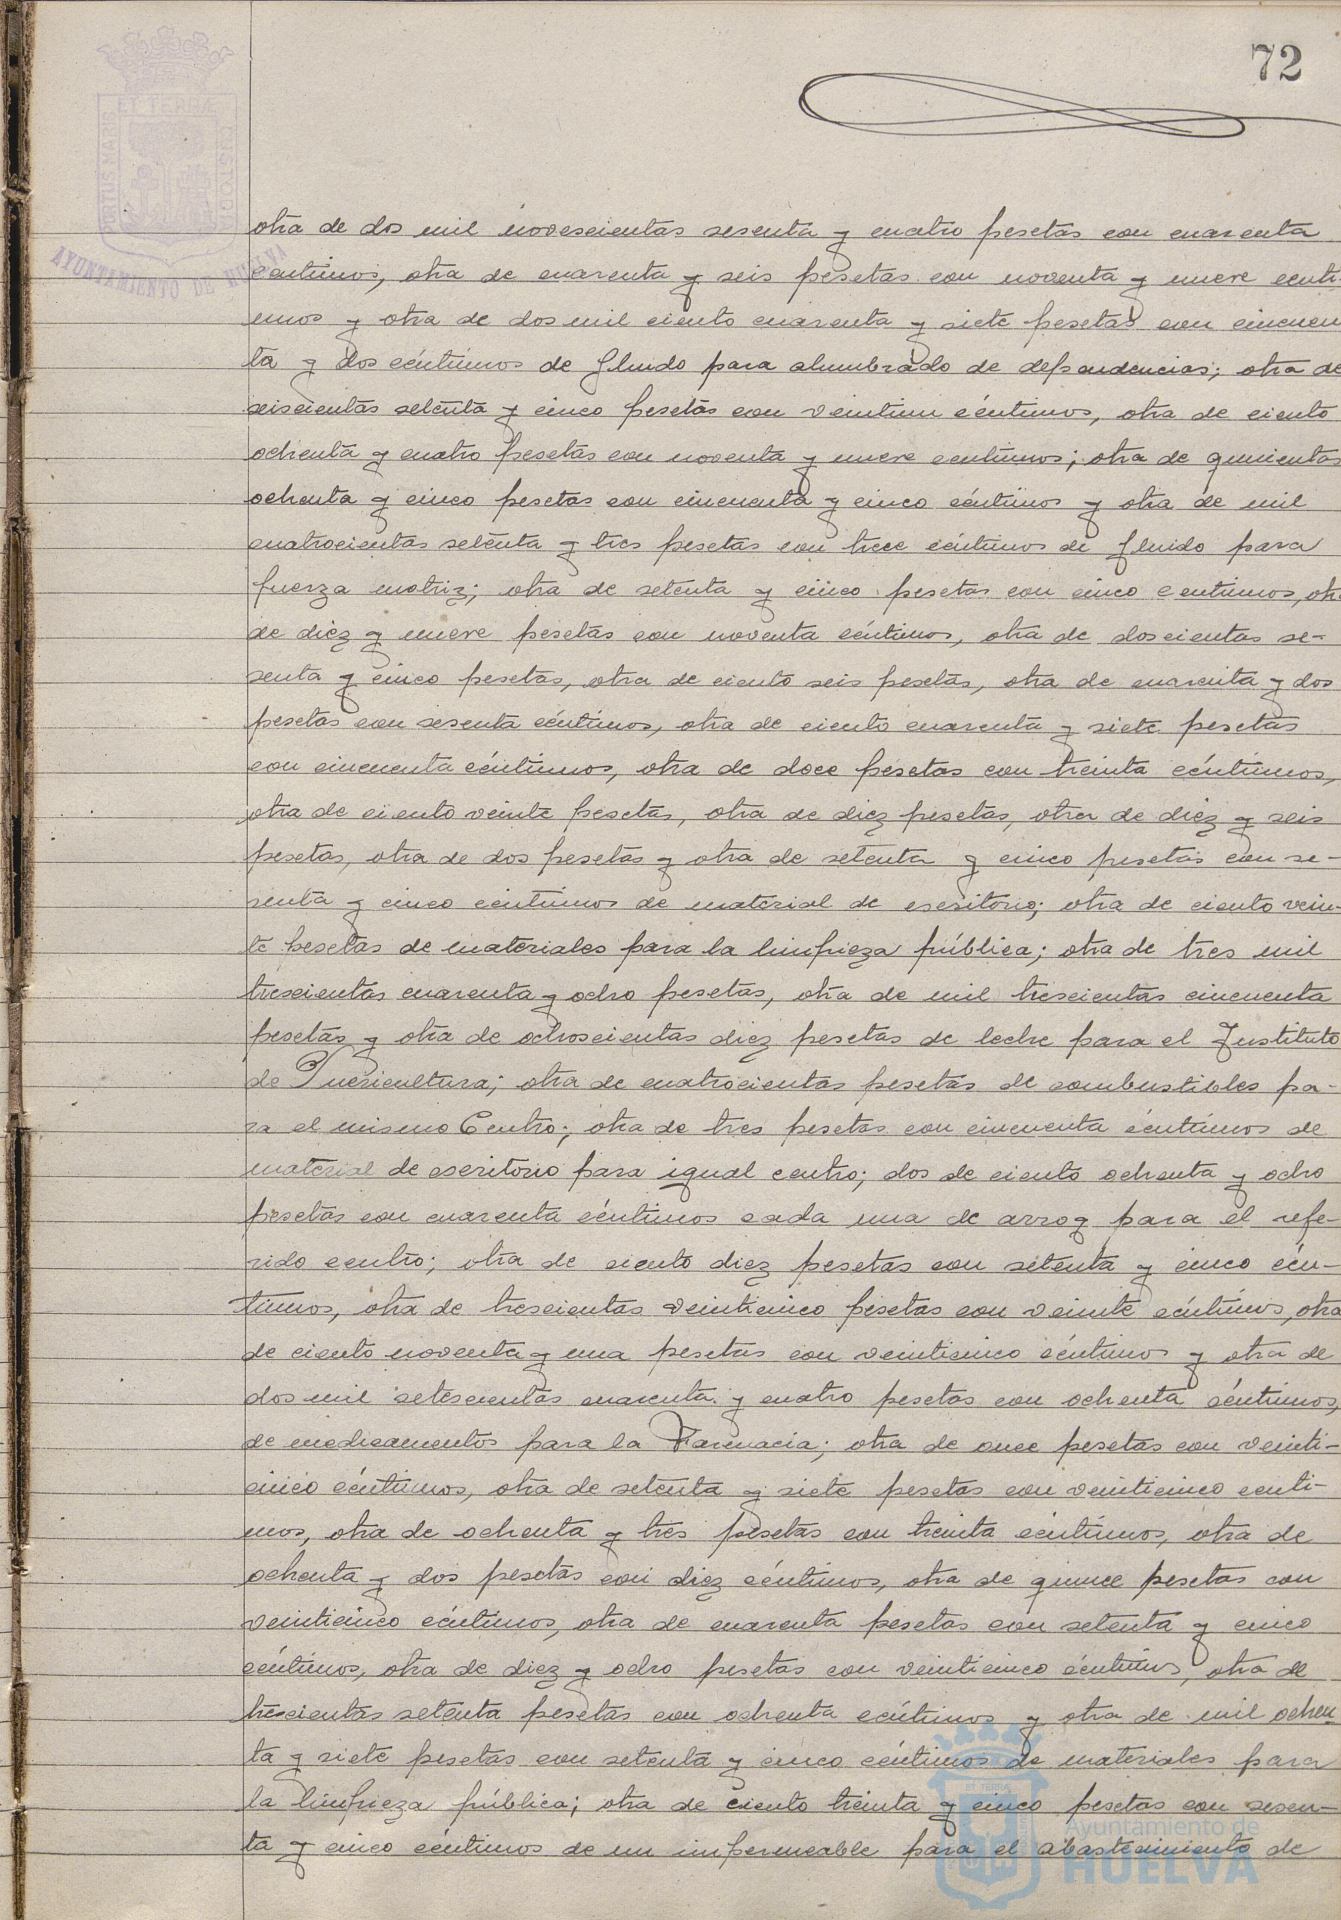 72
ET TERRÆ
PORTUS MARIS
CUSTODIA
AYUNTAMIENTO DE HUELVA
otra de dos mil novescientas sesenta y cuatro pesetas con cuarenta
centimos, otra de cuarenta y seis pesetas con noventa y nueve centi-
mos y otra de dos mil ciento cuarenta y siete pesetas con cincuen
ta y dos céntimos de fluido para alumbrado de dependencias; otra de
seiscientas setenta y cinco pesetas con veintiun céntimos, otra de ciento
ochenta y cuatro pesetas con noventa y nueve centimos; otra de quinientas
ochenta y cinco pesetas con cincuenta y cinco céntimos y otra de mil
cuatrocientas setenta y tres pesetas con trece céntimos de fluido para
fuerza motriz; otra de setenta y cinco pesetas con cinco centimos, otra
de diez y nueve pesetas con noventa céntimos, otra de doscientas se-
senta y cinco pesetas, otra de ciento seis pesetas, otra de cuarenta y dos
pesetas con sesenta céntimos, otra de ciento cuarenta y siete pesetas
con cincuenta céntimos, otra de doce pesetas con treinta céntimos,
otra de ciento veinte pesetas, otra de diez pesetas, otra de diez y seis
pesetas, otra de dos pesetas y otra de setenta y cinco pesetas con se-
senta y cinco centimos de material de escritorio; otra de ciento vein-
te pesetas de materiales para la limpieza pública; otra de tres mil
trescientas cuarenta y ocho pesetas, otra de mil trescientas cincuenta
pesetas y otra de ochoscientas diez pesetas de leche para el Instituto
de Puericultura; otra de cuatrocientas pesetas de combustibles pa-
ra el mismo Centro; otra de tres pesetas con cincuenta céntimos de
material de escritorio para igual centro; dos de ciento ochenta y ocho
pesetas con cuarenta céntimos cada una de arroz para el refe-
rido centro; otra de ciento diez pesetas con setenta y cinco cén-
timos, otra de trescientas veinticinco pesetas con veinte céntimos, otra
de ciento noventa y una pesetas con veinticinco céntimos y otra de
dos mil setescientas cuarenta y cuatro pesetas con ochenta céntimos,
de medicamentos para la Farmacia; otra de once pesetas con veinti-
cinco céntimos, otra de setenta y siete pesetas con veinticinco centi-
mos, otra de ochenta y tres pesetas con treinta céntimos, otra de
ochenta y dos pesetas con diez céntimos, otra de quince pesetas con
veinticinco céntimos, otra de cuarenta pesetas con setenta y cinco
céntimos, otra de diez y ocho pesetas con veinticinco céntimos, otra de
trescientas setenta pesetas con ochenta céntimos y otra de mil ochen-
ta y siete pesetas con setenta y cinco céntimos de materiales para
la limpieza pública; otra de ciento treinta y cinco pesetas con sesen-
ta y cinco céntimos de un impermeable para el abastecimiento de
ET TERRÆ
Ayuntamiento de
HUELVA